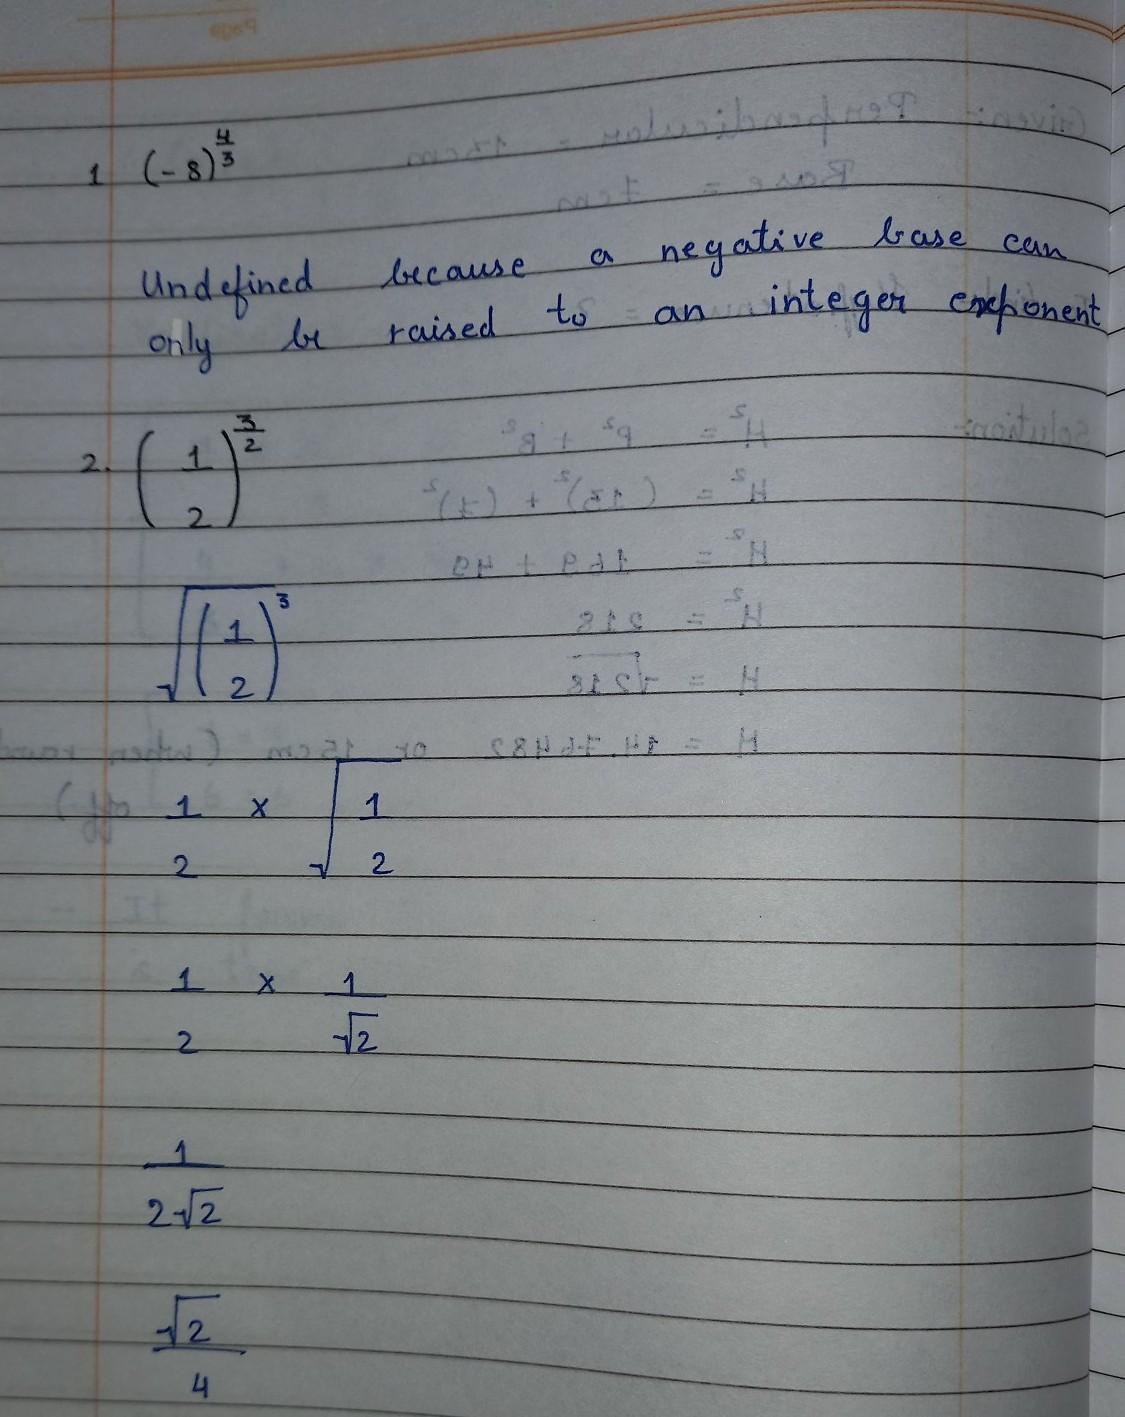 1 (-8)^(4/3)
Undefined because a negative base can
only be raised to an integer exponent
2. (1/2)^(3/2)
√(1/2)^3
1/2 × √(1/2)
1/2 × 1/√2
1/2√2
√2/4